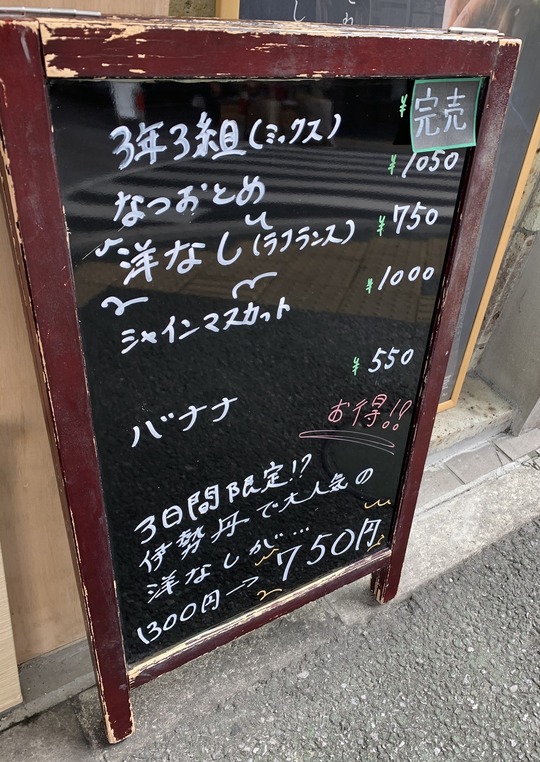 3年3組(ミックス) ¥ 完売
なつおとめ ¥1050
洋なし(ラフランス) ¥750
シャインマスカット ¥1000
バナナ ¥550
お得!!?
3日間限定!?
伊勢丹で大人気の
洋なしが…
1300円→750円